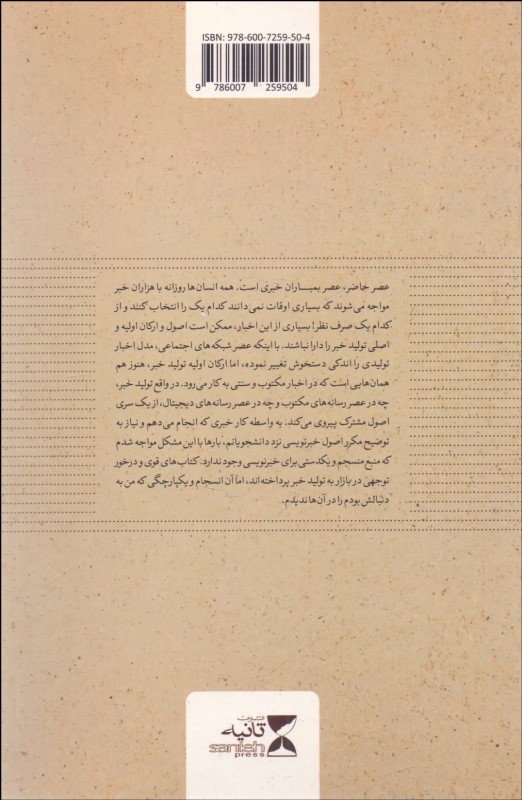 ISBN: 978-600-7259-50-4
9 786007 259504
عصر حاضر، عصر بمباران خبری است. همه انسان‌ها روزانه با هزاران خبر
مواجه می‌شوند که بسیاری اوقات نمی‌دانند کدام یک را انتخاب کنند و از
کدام یک صرف نظر! بسیاری از این اخبار، ممکن است اصول و ارکان اولیه و
اصلی تولید خبر را دارا نباشند. با اینکه عصر شبکه‌های اجتماعی، مدل اخبار
تولیدی را اندکی دستخوش تغییر نموده، اما ارکان اولیه تولید خبر، هنوز هم
همان‌هایی است که در اخبار مکتوب و سنتی به کار می‌رود. در واقع تولید خبر،
چه در عصر رسانه‌های مکتوب و چه در عصر رسانه‌های دیجیتال، از یک سری
اصول مشترک پیروی می‌کند. به واسطه کار خبری که انجام می‌دهم و نیاز به
توضیح مکرر اصول خبرنویسی نزد دانشجویانم، بارها با این مشکل مواجه شدم
که منبع منسجم و یکدستی برای خبرنویسی وجود ندارد. کتاب‌های قوی و درخور
توجهی در بازار به تولید خبر پرداخته‌اند، اما آن انسجام و یکپارچگی که من به
دنبالش بودم را در آن‌ها ندیدم.
ثانیه
sanieh
press